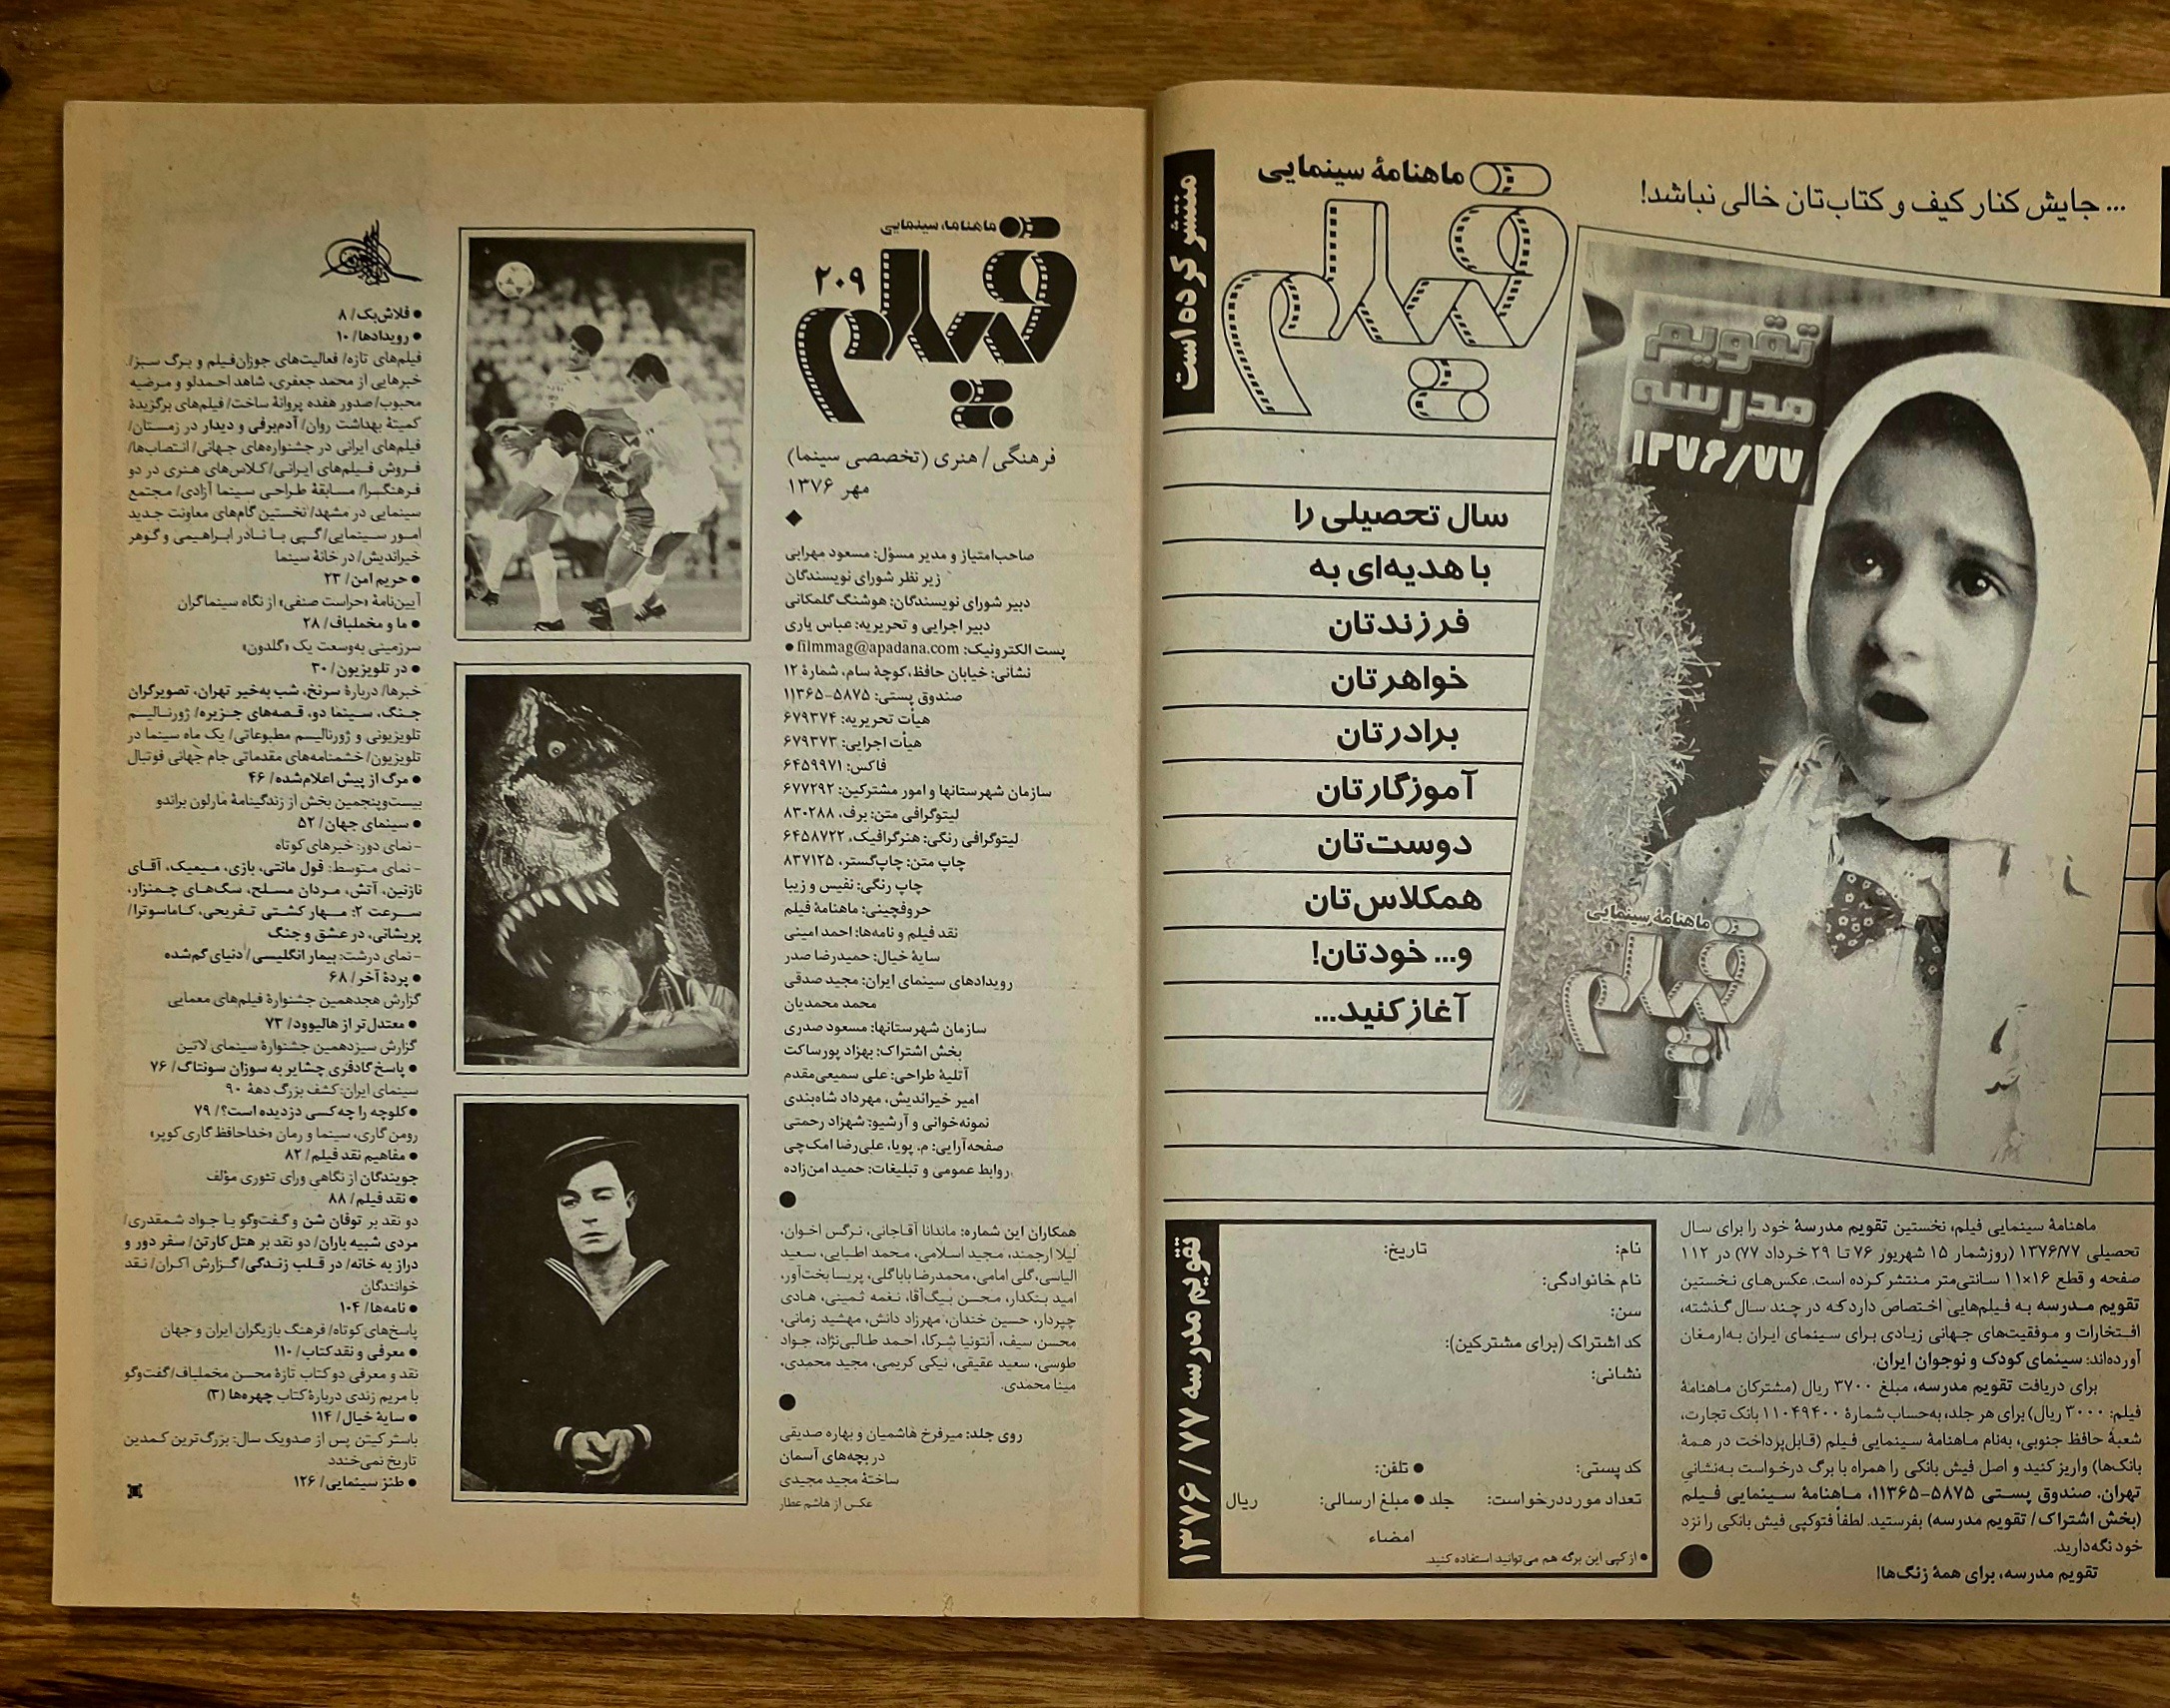 ... جایش کنار کیف و کتاب‌تان خالی نباشد!
ماهنامهٔ سینمایی
فیلم
منتشر کرده است
تقویم
مدرسه
۱۳۷۶/۷۷
سال تحصیلی را
با هدیه‌ای به
فرزندتان
خواهرتان
برادرتان
آموزگارتان
دوست‌تان
همکلاس‌تان
و... خودتان!
آغاز کنید...
ماهنامهٔ سینمایی
فیلم
ماهنامهٔ سینمایی فیلم، نخستین تقویم مدرسهٔ خود را برای سال
تحصیلی ۱۳۷۶/۷۷ (روزشمار ۱۵ شهریور ۷۶ تا ۲۹ خرداد ۷۷) در ۱۱۲
صفحه و قطع ۱۶×۱۱ سانتی‌متر منتشر کرده است. عکس‌های نخستین
تقویم مدرسه به فیلم‌هایی اختصاص دارد که در چند سال گذشته،
افتخارات و موفقیت‌های جهانی زیادی برای سینمای ایران به‌ارمغان
آورده‌اند: سینمای کودک و نوجوان ایران.
برای دریافت تقویم مدرسه، مبلغ ۳۷۰۰ ریال (مشترکان ماهنامهٔ
فیلم: ۳۰۰۰ ریال) برای هر جلد، به‌حساب شمارهٔ ۱۱۰۴۹۴۰۰ بانک تجارت،
شعبهٔ حافظ جنوبی، به‌نام ماهنامهٔ سینمایی فیلم (قابل‌پرداخت در همهٔ
بانک‌ها) واریز کنید و اصل فیش بانکی را همراه با برگ درخواست به‌نشانی
تهران. صندوق پستی ۵۸۷۵-۱۱۳۶۵، ماهنامهٔ سینمایی فیلم
(بخش اشتراک/ تقویم مدرسه) بفرستید. لطفاً فتوکپی فیش بانکی را نزد
خود نگه‌دارید.
تقویم مدرسه، برای همهٔ زنگ‌ها!
تقویم مدرسه ۱۳۷۶/۷۷
نام: تاریخ:
نام خانوادگی:
سن:
کد اشتراک (برای مشترکین):
نشانی:
کد پستی: ● تلفن:
تعداد مورددرخواست: جلد ● مبلغ ارسالی: ریال
امضاء
● از کپی این برگه هم می‌توانید استفاده کنید.
ماهنامه سینمایی
فیلم
۲۰۹
فرهنگی/ هنری (تخصصی سینما)
مهر ۱۳۷۶
صاحب‌امتیاز و مدیر مسؤل: مسعود مهرابی
زیر نظر شورای نویسندگان
دبیر شورای نویسندگان: هوشنگ گلمکانی
دبیر اجرایی و تحریریه: عباس یاری
پست الکترونیک: filmmag@apadana.com ●
نشانی: خیابان حافظ، کوچهٔ سام، شمارهٔ ۱۲
صندوق پستی: ۵۸۷۵-۱۱۳۶۵
هیأت تحریریه: ۶۷۹۳۷۴
هیأت اجرایی: ۶۷۹۳۷۳
فاکس: ۶۴۵۹۹۷۱
سازمان شهرستانها و امور مشترکین: ۶۷۷۲۹۲
لیتوگرافی متن: برف، ۸۳۰۲۸۸
لیتوگرافی رنگی: هنرگرافیک، ۶۴۵۸۷۲۲
چاپ متن: چاپ‌گستر، ۸۳۷۱۲۵
چاپ رنگی: نفیس و زیبا
حروفچینی: ماهنامهٔ فیلم
نقد فیلم و نامه‌ها: احمد امینی
سایهٔ خیال: حمیدرضا صدر
رویدادهای سینمای ایران: مجید صدقی
محمد محمدیان
سازمان شهرستانها: مسعود صدری
بخش اشتراک: بهزاد پورساکت
آتلیهٔ طراحی: علی سمیعی‌مقدم
امیر خیراندیش، مهرداد شاه‌بندی
نمونه‌خوانی و آرشیو: شهزاد رحمتی
صفحه‌آرایی: م. پویا، علی‌رضا امک‌چی
روابط عمومی و تبلیغات: حمید امن‌زاده
همکاران این شماره: ماندانا آقاجانی، نرگس اخوان،
لیلا ارجمند، مجید اسلامی، محمد اطبایی، سعید
الیاسی، گلی امامی، محمدرضا باباگلی، پریسا بخت‌آور،
امید بنکدار، محسن بیگ‌آقا، نغمه ثمینی، هادی
چپردار، حسین خندان، مهرزاد دانش، مهشید زمانی،
محسن سیف، آنتونیا شرکا، احمد طالبی‌نژاد، جواد
طوسی، سعید عقیقی، نیکی کریمی، مجید محمدی،
مینا محمدی.
روی جلد: میرفرخ هاشمیان و بهاره صدیقی
در بچه‌های آسمان
ساختهٔ مجید مجیدی
عکس از هاشم عطار
● فلاش‌بک/ ۸
● رویدادها/ ۱۰
فیلم‌های تازه/ فعالیت‌های جوزان‌فیلم و برگ سبز/
خبرهایی از محمد جعفری، شاهد احمدلو و مرضیه
محبوب/ صدور هفده پروانهٔ ساخت/ فیلم‌های برگزیدهٔ
کمیتهٔ بهداشت روان/ آدم‌برفی و دیدار در زمستان/
فیلم‌های ایرانی در جشنواره‌های جهانی/ انتصاب‌ها/
فروش فیلم‌های ایرانی/ کلاس‌های هنری در دو
فرهنگسرا/ مسابقهٔ طراحی سینما آزادی/ مجتمع
سینمایی در مشهد/ نخستین گام‌های معاونت جدید
امور سینمایی/ گپی با نادر ابراهیمی و گوهر
خیراندیش/ در خانهٔ سینما
● حریم امن/ ۲۳
آیین‌نامهٔ «حراست صنفی» از نگاه سینماگران
● ما و مخملباف/ ۲۸
سرزمینی به‌وسعت یک «گلدون»
● در تلویزیون/ ۳۰
خبرها/ دربارهٔ سرنخ، شب به‌خیر تهران، تصویرگران
جنگ، سینما دو، قصه‌های جزیره/ ژورنالیسم
تلویزیونی و ژورنالیسم مطبوعاتی/ یک ماه سینما در
تلویزیون/ خشمنامه‌های مقدماتی جام جهانی فوتبال
● مرگ از پیش اعلام‌شده/ ۴۶
بیست‌وپنجمین بخش از زندگینامهٔ مارلون براندو
● سینمای جهان/ ۵۲
- نمای دور: خبرهای کوتاه
- نمای متوسط: قول مانتی، بازی، میمیک، آقای
نازنین، آتش، مردان مسلح، سگ‌های چمنزار،
سرعت ۲: مهار کشتی تفریحی، کاماسوترا/
پریشانی، در عشق و جنگ
- نمای درشت: بیمار انگلیسی/ دنیای گم‌شده
● پردهٔ آخر/ ۶۸
گزارش هجدهمین جشنوارهٔ فیلم‌های معمایی
● معتدل‌تر از هالیوود/ ۷۳
گزارش سیزدهمین جشنوارهٔ سینمای لاتین
● پاسخ گادفری چشایر به سوزان سونتاگ/ ۷۶
سینمای ایران: کشف بزرگ دههٔ ۹۰
● کلوچه را چه‌کسی دزدیده است؟/ ۷۹
رومن گاری، سینما و رمان «خداحافظ گاری کوپر»
● مفاهیم نقد فیلم/ ۸۲
جویندگان از نگاهی ورای تئوری مؤلف
● نقد فیلم/ ۸۸
دو نقد بر توفان شن و گفت‌وگو با جواد شمقدری/
مردی شبیه باران/ دو نقد بر هتل کارتن/ سفر دور و
دراز به خانه/ در قلب زندگی/ گزارش اکران/ نقد
خوانندگان
● نامه‌ها/ ۱۰۴
پاسخ‌های کوتاه/ فرهنگ بازیگران ایران و جهان
● معرفی و نقد کتاب/ ۱۱۰
نقد و معرفی دو کتاب تازهٔ محسن مخملباف/ گفت‌وگو
با مریم زندی دربارهٔ کتاب چهره‌ها (۳)
● سایهٔ خیال/ ۱۱۴
باستر کیتن پس از صدویک سال: بزرگ‌ترین کمدین
تاریخ نمی‌خندد
● طنز سینمایی/ ۱۲۶